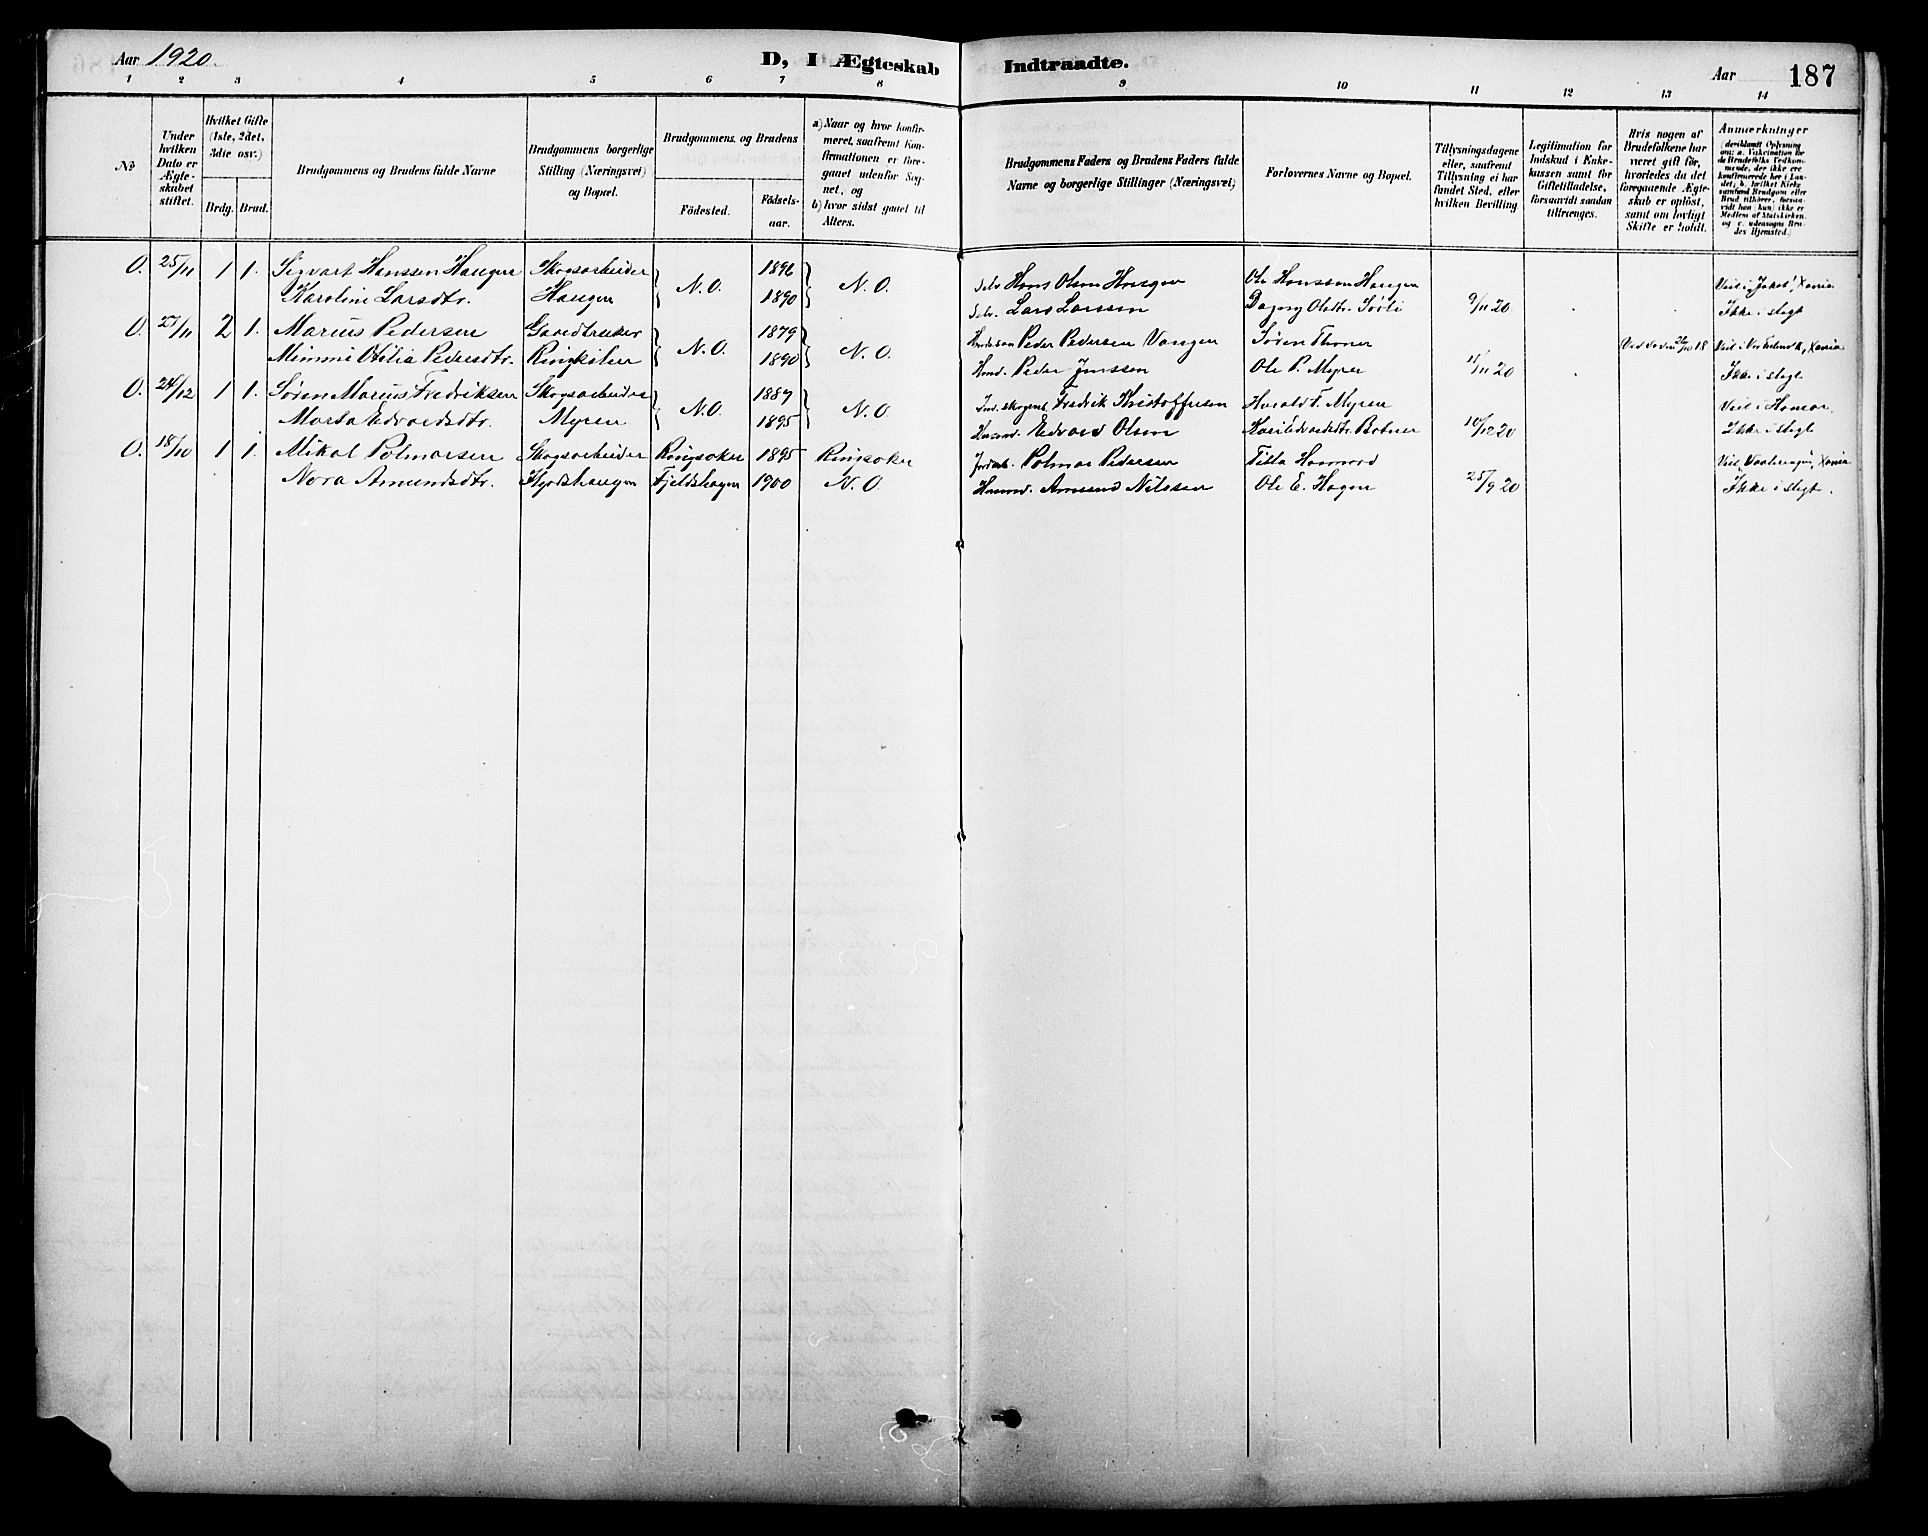 Aar 1920. D, I Ægteskab Indtraadte. Aar 187
1 2 3 4 5 6 7 8 9 10 11 12 13 14
No
Under hvilken Dato er Ægteskabet stiftet.
Hvilket Gifte (1ste, 2det, 3die osv.)
Brdg. Brud.
Brudgommens og Brudens fulde Navne
Brudgommens borgerlige Stilling (Næringsvei) og Bopæl.
Brudgommens og Brudens
Fødested. Fødselsaar.
a) Naar og hvor konfirmeret, saafremt Konfirmationen er foregaaet udenfor Sognet, og
b) hvor sidst gaaet til Alters.
Brudgommens Faders og Brudens Faders fulde Navne og borgerlige Stillinger (Næringsvei)
Forlovernes Navne og Bopæl.
Tillysningsdagene eller, saafremt Tillysning ei har fundet Sted, efter hvilken Bevilling
Legitimation for Indskud i Enkekassen samt for Giftetilladelse, forsaavidt saadan tiltrænges.
Hvis nogen af Brudefolkene har været gift før, hvorledes da det foregaaende Ægteskab er opløst, samt om lovligt Skifte er holdt.
Anmærkninger (deriblandt Oplysning om: a. Vakcination for de Brudefolks Vedkommende, der ikke ere konfirmerede her i Landet; b. hvilket Kirkesamfund Brudgom eller Brud tilhører, forsaavidt han (hun) ikke er Medlem af Statskirken og c. udensogns Brudes Hjemsted.)
O. 25/11 1 1. Sigvart Hanssen Haugen Skogsarbeider 1896 Selv. Hans Olsen Haugen Ole Hanssen Haugen Viet i Jakob, Xania
Karoline Larsdtr. Haugen N. O. 1890 N. O. Selv. Lars Larssen Dagny Olsdtr. Sørli 9/11 20 Ikke i slegt
O. 27/11 2 1. Marius Pedersen Gaardbruker 1879 Peder Pedersen Vangen Søren Thoner 18 Viet i Xania
Mimmi Otilia Pedersdtr. N. O. 1890 N. O. Husmd. Peder Jenssen Ole P. Myrer 11/11 20 Ikke i slegt
O. 24/12 1 1. Søren Marius Fredriksen Skogsarbeider 1887 Fredrik Kristoffersen Harald F. Myren Viet i Hamar.
Marta Edvardsdtr. Myren N. O. 1895 N. O. Husmd. Edvard Olsen Kari Edvardsdtr. Botner 10/12 20 Ikke i slegt
O. 18/10 1 1. Mikal Polmarsen Skogsarbeider Ringsaker 1895 Ringsaker Polmar Pedersen Tilla Viet i Vaalerengen, Xania
Nora Amundsdtr. Fjeldshagen 1900 N. O. Husmd. Amund Nilssen Ole E. Hagen 25/9 20 Ikke i slegt.